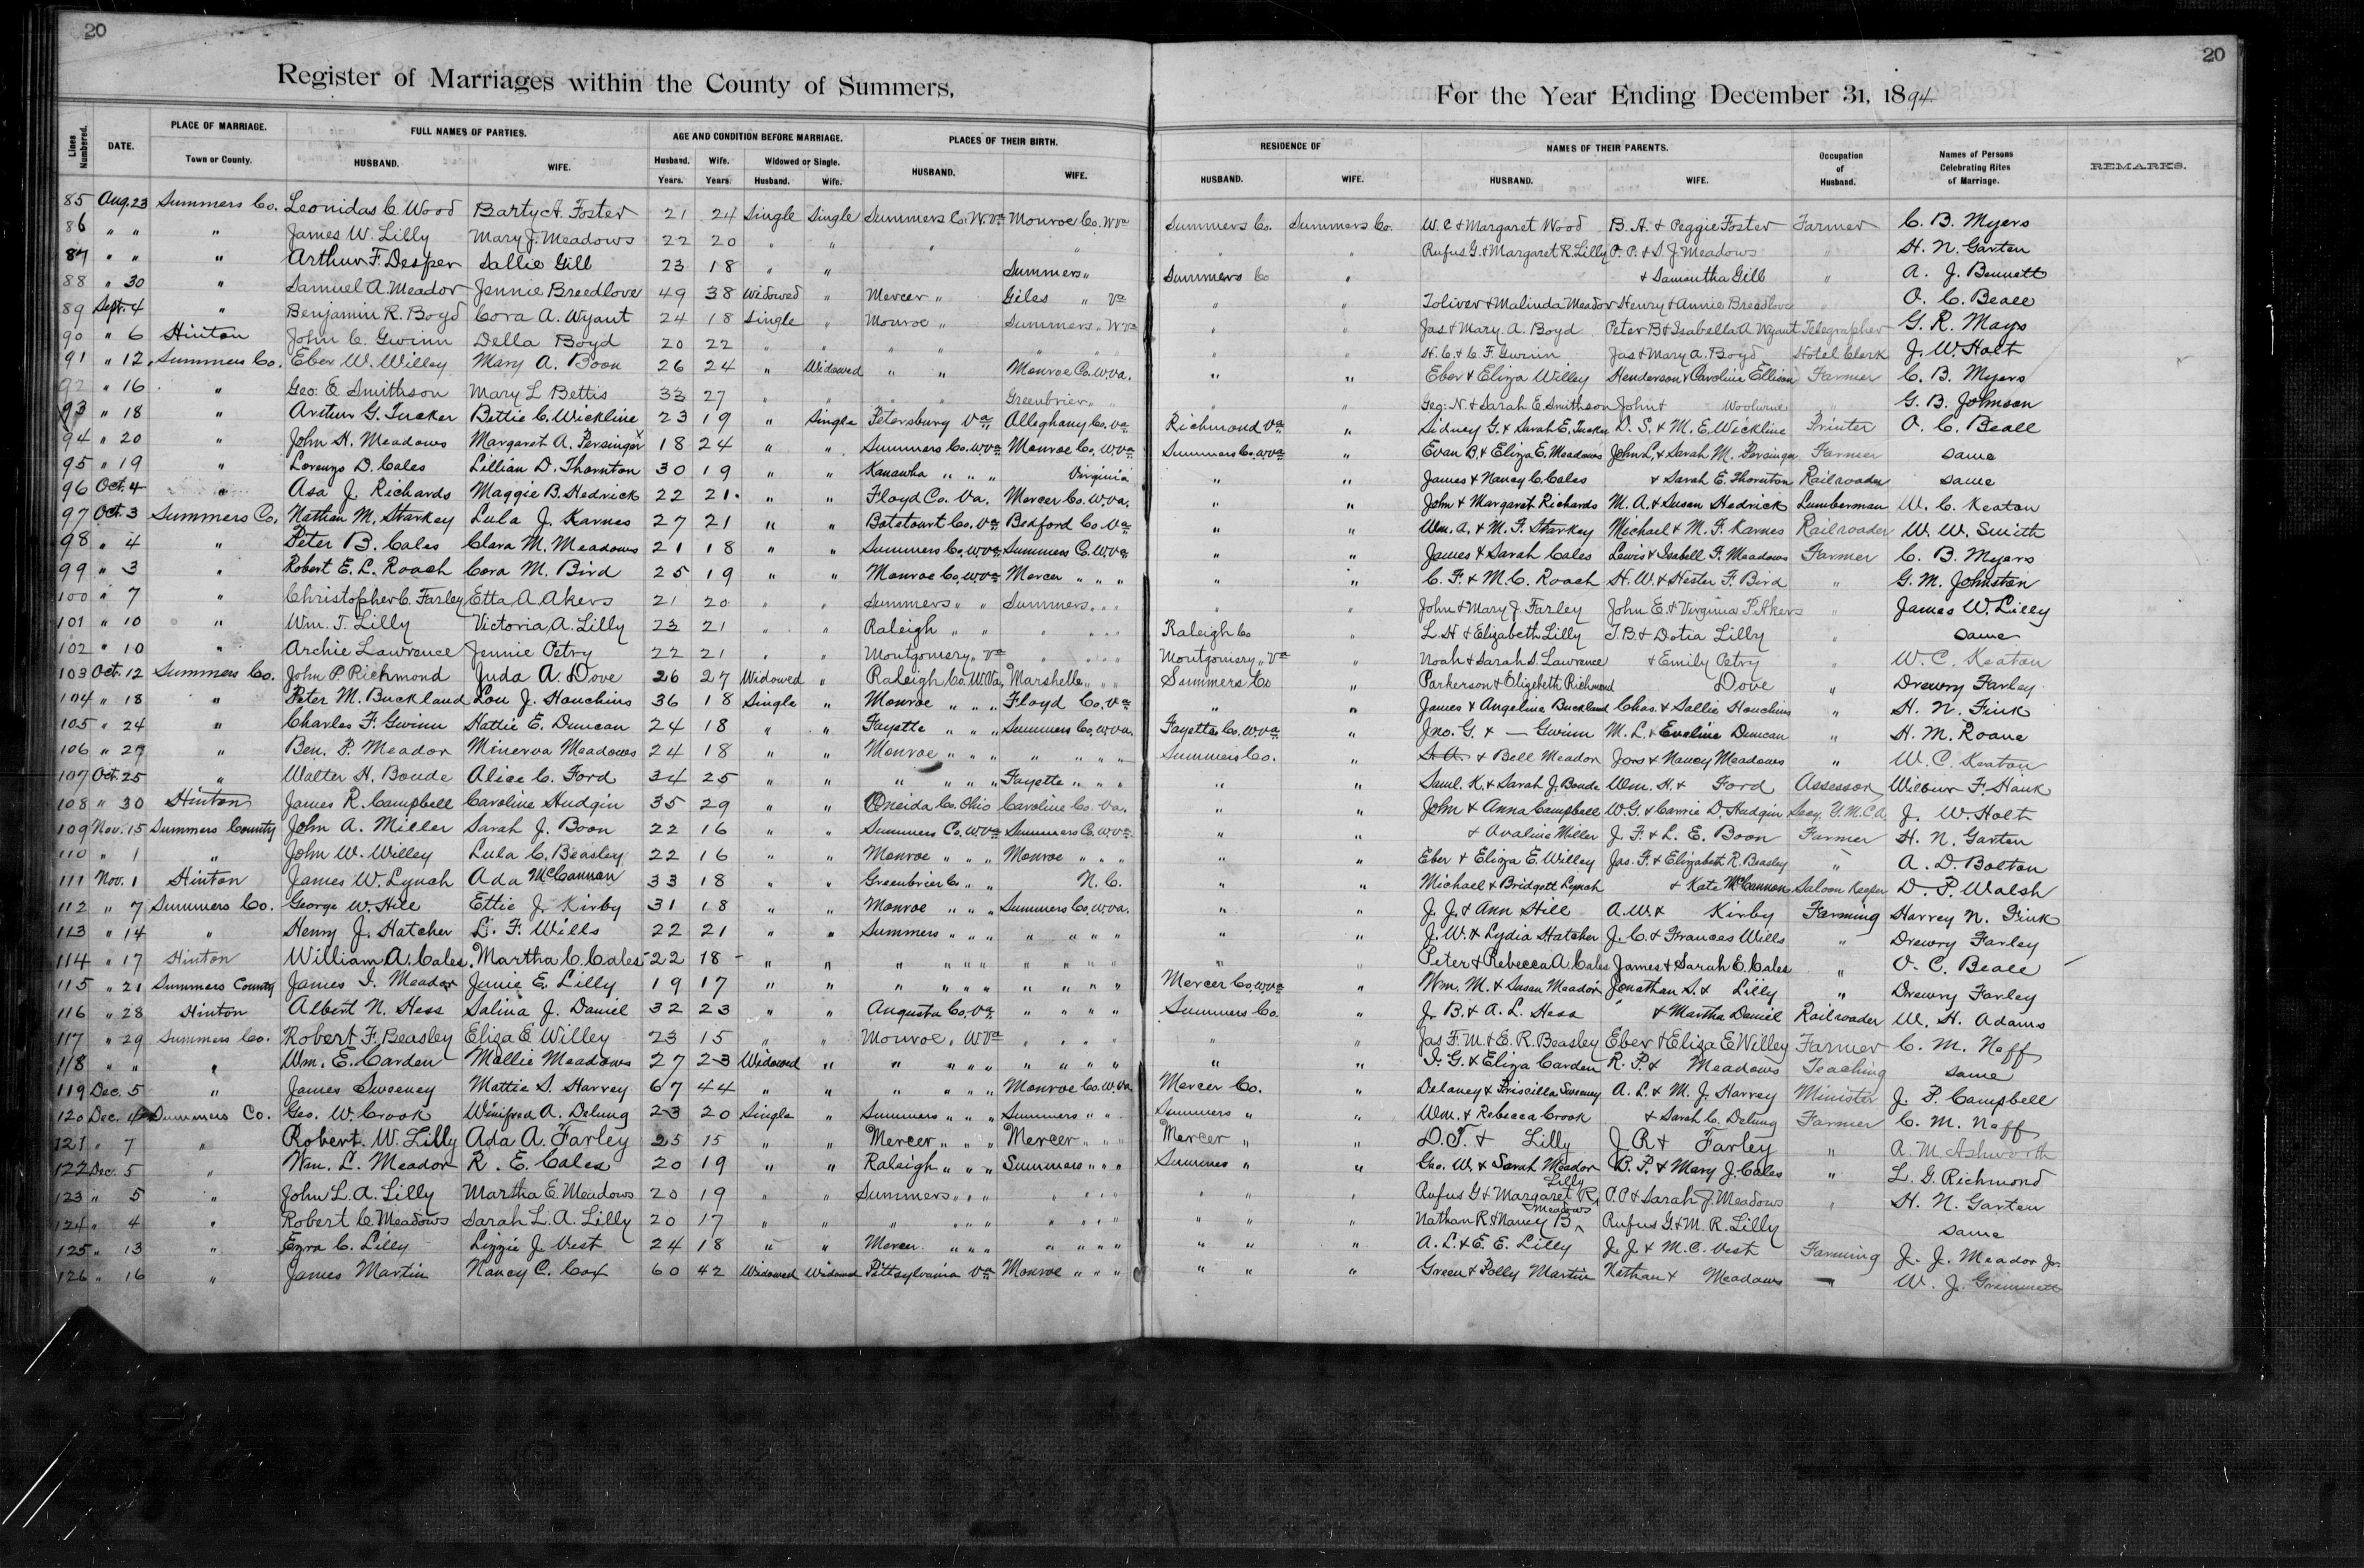 20
20
Register of Marriages within the County of Summers,
For the Year Ending December 31, 1894.
Lines Numbered. DATE. PLACE OF MARRIAGE. FULL NAMES OF PARTIES. AGE AND CONDITION BEFORE MARRIAGE. PLACES OF THEIR BIRTH. RESIDENCE OF NAMES OF THEIR PARENTS. Occupation of Husband. Names of Persons Celebrating Rites of Marriage. REMARKS.
Town or County. HUSBAND. WIFE. Husband. Wife. Widowed or Single. HUSBAND. WIFE. HUSBAND. WIFE. HUSBAND. WIFE.
Years. Years. Husband. Wife.
85 Aug. 23 Summers Co. Leonidas C. Wood Barty A. Foster 21 24 Single Single Summers Co. W.Va Monroe Co. W Va Summers Co. Summers Co. W. C & Margaret Wood B. A. & Peggie Foster Farmer C. B. Myers
86 " " " James W. Lilly Mary J. Meadows 22 20 " " " " " " Rufus G. & Margaret R. Lilly P. P. & S. J. Meadows " H. N. Garten
87 " " " Arthur F. Desper Sallie Gill 23 18 " " Summers " Summers Co " & Samantha Gill " A. J. Bennett
88 " 30 " Samuel A. Meador Jennie Breedlove 49 38 Widowed " Mercer " Giles " Va " " Toliver & Malinda Meador Henry & Annie Breedlove O. C. Beall
89 Sept. 4 " Benjamin R. Boyd Cora A. Wyant 24 18 Single " Monroe " Summers " W Va " " Jas & Mary A. Boyd Peter B & Isabella A Wyant Telegrapher G. R. Mays
90 " 6 Hinton John C. Gwinn Della Boyd 20 22 " " " " " " " H. C. & C. F. Gwinn Jas & Mary A. Boyd Hotel Clerk J. W. Holt
91 " 12 Summers Co. Eber W. Willey Mary A. Boon 26 24 " Widowed " " Monroe Co. W.Va. " " Eber & Eliza Willey Henderson & Caroline Ellison Farmer C. B. Myers
92 " 16 " Geo. E Smithson Mary L Bettis 33 27 " " " " Greenbrier " " " " Geo. N. & Sarah E. Smithson John & Woolwine " G. B. Johnson
93 " 18 " Arthur G. Tucker Bettie C. Wickline 23 19 " Single Petersburg Va Alleghany Co. Va Richmond Va " Sidney G. & Sarah E. Tucker D. S. & M. E. Wickline Printer O. C. Beall
94 " 20 " John H. Meadows Margaret A. Persinger 18 24 " " Summers Co. W Va Monroe Co. W Va Summers Co. W Va " Evan B. & Eliza E. Meadows John L. & Sarah M. Persinger Farmer same
95 " 19 " Lorenzo D. Cales Lillian D. Thornton 30 19 " " Kanawha " " " Virginia " " James & Nancy C. Cales & Sarah E. Thornton Railroader same
96 Oct. 4 " Asa J. Richards Maggie B. Hedrick 22 21 " " Floyd Co. Va. Mercer Co. W.Va. " " John & Margaret Richards M. A. & Susan Hedrick Lumberman W. C. Keaton
97 Oct. 3 Summers Co. Nathan M. Starkey Lula J. Karnes 27 21 " " Botetourt Co. Va Bedford Co. Va " " Wm. A. & M. F. Starkey Michael & M. F. Karnes Railroader W. W. Smith
98 " 4 " Peter B. Cales Clara M. Meadows 21 18 " " Summers Co. W Va Summers C. W Va " " James & Sarah Cales Lewis & Isabell F. Meadows Farmer C. B. Myers
99 " 3 " Robert E. L. Roach Cora M. Bird 25 19 " " Monroe Co. W Va Mercer " " " " " C. F. & M. C. Roach H. W. & Hester F. Bird " G. M. Johnston
100 " 7 " Christopher C. Farley Etta A. Akers 21 20 " " Summers " " Summers " " " " " John & Mary J. Farley John E. & Virginia P. Akers " James W. Lilly
101 " 10 " Wm. T. Lilly Victoria A. Lilly 23 21 " " Raleigh " " " " " " Raleigh Co " L. H & Elizabeth Lilly J. B. & Dotia Lilly " same
102 " 10 " Archie Lawrence Jennie Petry 22 21 " " Montgomery " Va " " " " Montgomery " Va " Noah & Sarah S. Lawrence & Emily Petry " W. C. Keaton
103 Oct. 12 Summers Co. John P. Richmond Juda A. Dove 26 27 Widowed " Raleigh Co. W.Va. Marshall " " " Summers Co " Parkerson & Elizabeth Richmond Dove " Drewry Farley
104 " 18 " Peter M. Buckland Lou J. Houchins 36 18 Single " Monroe " " " Floyd Co. Va " " James & Angeline Buckland Chas. & Sallie Houchins " H. N. Fink
105 " 24 " Charles F. Gwinn Hattie E. Duncan 24 18 " " Fayette " " " Summers Co. W.Va. Fayette Co. W.Va " Jno. G. & — Gwinn M. L. & Eveline Duncan " H. M. Roane
106 " 27 " Ben. P. Meador Minerva Meadows 24 18 " " Monroe " " " " " " " Summers Co. " S. A. & Bell Meador Jas & Nancy Meadows " W. C. Keaton
107 Oct. 25 " Walter H. Boude Alice C. Ford 34 25 " " " " " " Fayette " " " " " Saml. K. & Sarah J. Boude Wm. H. & Ford Assessor Wilbur F. Hank
108 " 30 Hinton James R. Campbell Caroline Hudgin 35 29 " " Oneida Co. Ohio Caroline Co. Va. " " John & Anna Campbell W. G. & Carrie D. Hudgin Secy. Y. M. C. A. J. W. Holt
109 Nov. 15 Summers County John A. Miller Sarah J. Boon 22 16 " " Summers Co. W Va Summers Co. W Va " " & Avaline Miller J. F. & L. E. Boon Farmer H. N. Garten
110 " 1 " John W. Willey Lula C. Beasley 22 16 " " Monroe " " " Monroe " " " " " Eber & Eliza E. Willey Jas. F. & Elizabeth R. Beasley " A. D. Bolton
111 Nov. 1 Hinton James W. Lynch Ada McCannon 33 18 " " Greenbrier Co " " N. C. " " Michael & Bridgett Lynch & Kate McCannon Saloon Keeper D. P. Walsh
112 " 7 Summers Co. George W. Hill Ettie J. Kirby 31 18 " " Monroe " " " Summers Co. W.Va. " " J. J. & Ann Hill A. W. & Kirby Farming Harvey N. Fink
113 " 14 " Henry J. Hatcher L. F. Wills 22 21 " " Summers " " " " " " " " " J. W. & Lydia Hatcher J. C. & Frances Wills " Drewry Farley
114 " 17 Hinton William A. Cales Martha C. Cales 22 18 " " " " " " " " " " " " Peter & Rebecca A. Cales James & Sarah E. Cales " O. C. Beall
115 " 21 Summers County James I. Meador Junie E. Lilly 19 17 " " " " " " " " " " Mercer Co. W Va " Wm. M. & Susan Meador Jonathan S. & Lilly " Drewry Farley
116 " 28 Hinton Albert N. Hess Salina J. Daniel 32 23 " " Augusta Co. Va " " " " Summers Co. " J. B. & A. L. Hess & Martha Daniel Railroader W. H. Adams
117 " 29 Summers Co. Robert F. Beasley Eliza E Willey 23 15 " " Monroe. W Va " " " " " " Jas F. M. & E. R. Beasley Eber & Eliza E Willey Farmer C. M. Neff
118 " " " Wm. E. Carden Mollie Meadows 27 23 Widowed " " " " " " " " " " " I. G. & Eliza Carden R. P. & Meadows Teaching same
119 Dec. 5 " James Sweeney Mattie S. Harvey 67 44 " " " " " " Monroe Co. W.Va Mercer Co. " Delaney & Priscilla Sweeney A. L. & M. J. Harvey Minister J. P. Campbell
120 Dec. 4 Summers Co. Geo. W. Crook Winifred A. Delung 23 20 Single " Summers " " " Summers " " Summers " " Wm. & Rebecca Crook & Sarah C. Delung Farmer C. M. Neff
121 " 7 " Robert. W. Lilly Ada A. Farley 25 15 " " Mercer " " " Mercer " " " Mercer " " D. T. & Lilly J. R & Farley " A. M. Ashworth
122 Dec. 5 " Wm. L. Meador R. E. Cales 20 19 " " Raleigh " " " Summers " " " Summers " " Geo. W. & Sarah Meador B. P. & Mary J. Cales " L. G. Richmond
123 " 5 " John L. A. Lilly Martha E. Meadows 20 19 " " Summers " " " " " " " " " " Rufus G & Margaret R. Lilly P. P & Sarah J. Meadows " H. N. Garten
124 " 4 " Robert C Meadows Sarah L. A. Lilly 20 17 " " " " " " " " " " " " " Nathan R & Nancy B Meadows Rufus G. & M. R. Lilly same
125 " 13 " Ezra C. Lilly Lizzie J. Vest 24 18 " " Mercer. " " " " " " " " " " A. L. & E. E. Lilly J. J. & M. C. Vest Farming J. J. Meador Jr.
126 " 16 " James Martin Nancy C. Cox 60 42 Widowed Widowed Pittsylvania Va Monroe " " " " " " Green & Polly Martin Nathan & Meadows " W. J. Grimmett